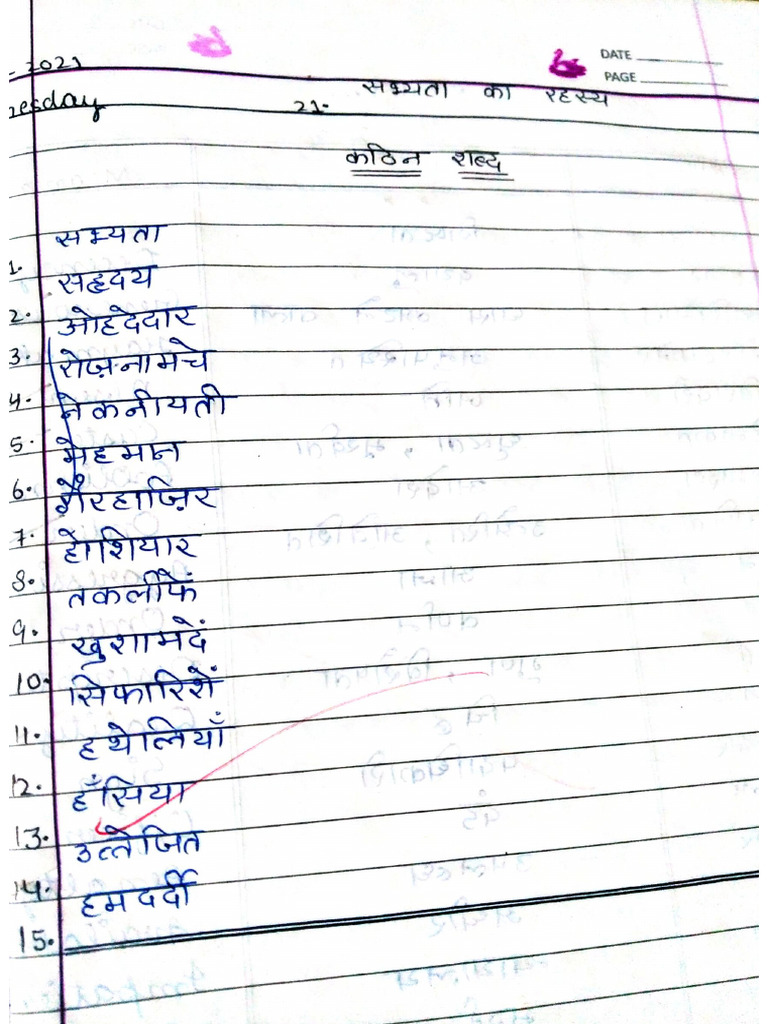 DATE
PAGE
2021
nesday
21. सभ्यता का रहस्य
कठिन शब्द
सभ्यता
1. सहृदय
2. ओहदेदार
3. रोज़नामचे
4. नेकनीयती
5. मेहमान
6. गैरहाज़िर
7. होशियार
8. तकलीफें
9. खुशामदें
10. सिफारिशें
11. हथेलियाँ
12. हँसिया
13. उत्तेजित
14. हमदर्दी
15.